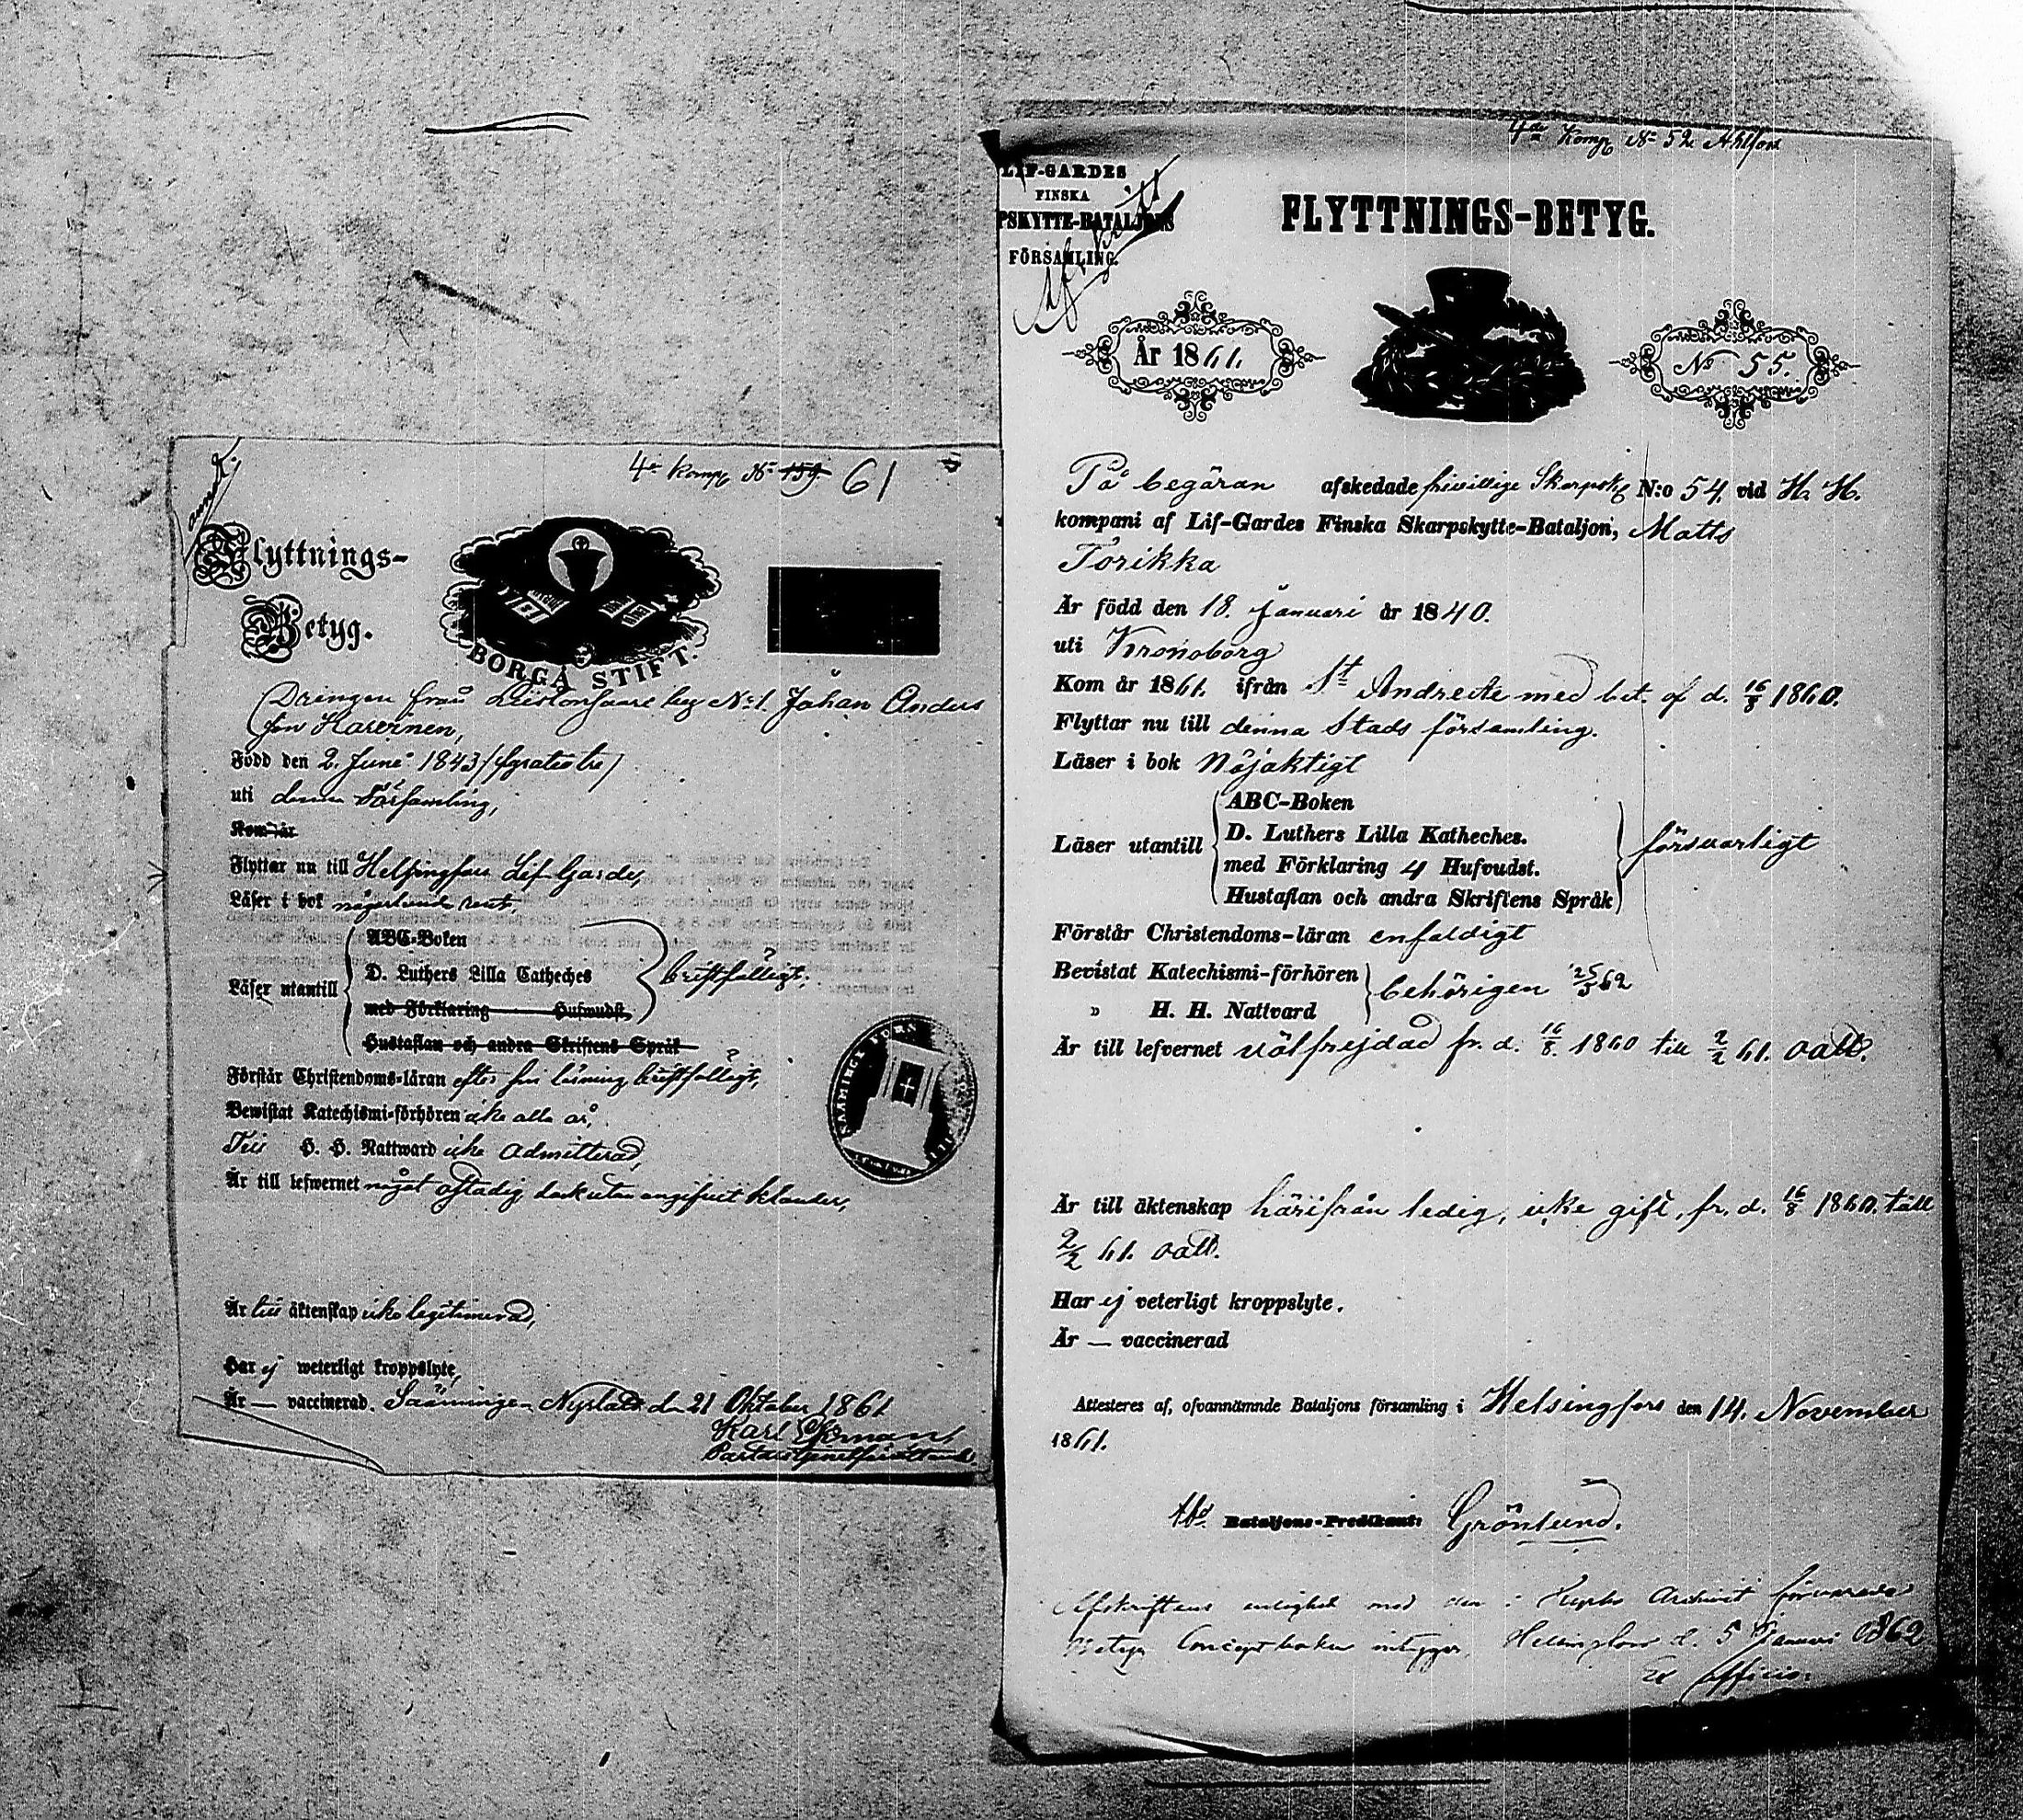 4de Komp No 159. 61
Flyttnings-
Betyg.
BORGÅ STIFT.
Drängen från by No 1. Johan Anders
son Havèrinen,
Född den 2. Juni 1843
uti denna Församling,
Kom år
Flyttar nu till Helsingfors Lif Garde,
Läser i bok någorlunda rent,
ABC-Boken
D. Luthers Lilla Catheches
Läser utantill
bristfälligt,
med Förklaring Hufwudst.
Hustaflan och andra Skriftens Språk
Förstår Christendoms-läran efter sin läsning bristfälligt,
Bewistat Katechismi-förhören icke alla år,
Till H. H. Nattward icke admitterad,
Är till lefwernet något ostadig dock utan angifvet klander,
Är till äktenskap icke legitimerad,
Har ej weterligt kroppslyte,
Är — vaccinerad. Sääminge Nyslott den 21 Oktober 1861
Karl Ekman
4de Komp No 52
LIF-GARDES
FINSKA
PSKYTTE-BATALJONS
FÖRSAMLING.
FLYTTNINGS-BETYG.
År 1861.
No 55.
På begäran afskedade frivillige Skarpsk N:o 54. vid H. H.
kompani af Lif-Gardes Finska Skarpskytte-Bataljon, Matts
Torikka
Är född den 18. Januari år 1840.
uti Kronoborg
Kom år 1861. ifrån St Andreæ med bet. af d. 16/8 1860.
Flyttar nu till denna Stads församling.
Läser i bok Nöjaktigt
ABC-Boken
D. Luthers Lilla Katheches.
Läser utantill
försvarligt
med Förklaring 4 Hufvudst.
Hustaflan och andra Skriftens Språk
Förstår Christendoms-läran enfaldigt
Bevistat Katechismi-förhören
behörigen
" H. H. Nattvard
Är till lefvernet välfrejdad fr. d. 16/8. 1860 till 2/2 61. oatt.
Är till äktenskap härifrån ledig, icke gift, fr. d. 16/8 1860. till
2/2 61. oatt.
Har ej veterligt kroppslyte.
Är — vaccinerad
Attesteres af, ofvannämnde Bataljons församling i Helsingfors den 14. November
1861.
Bataljons-Predikant: Grönlund.
Afskriftens enlighet med den i Kyrko Archivet förvarade
Betygs Concept boken intygar, Helsingfors d. 5 Januari 1862
Ex officio.